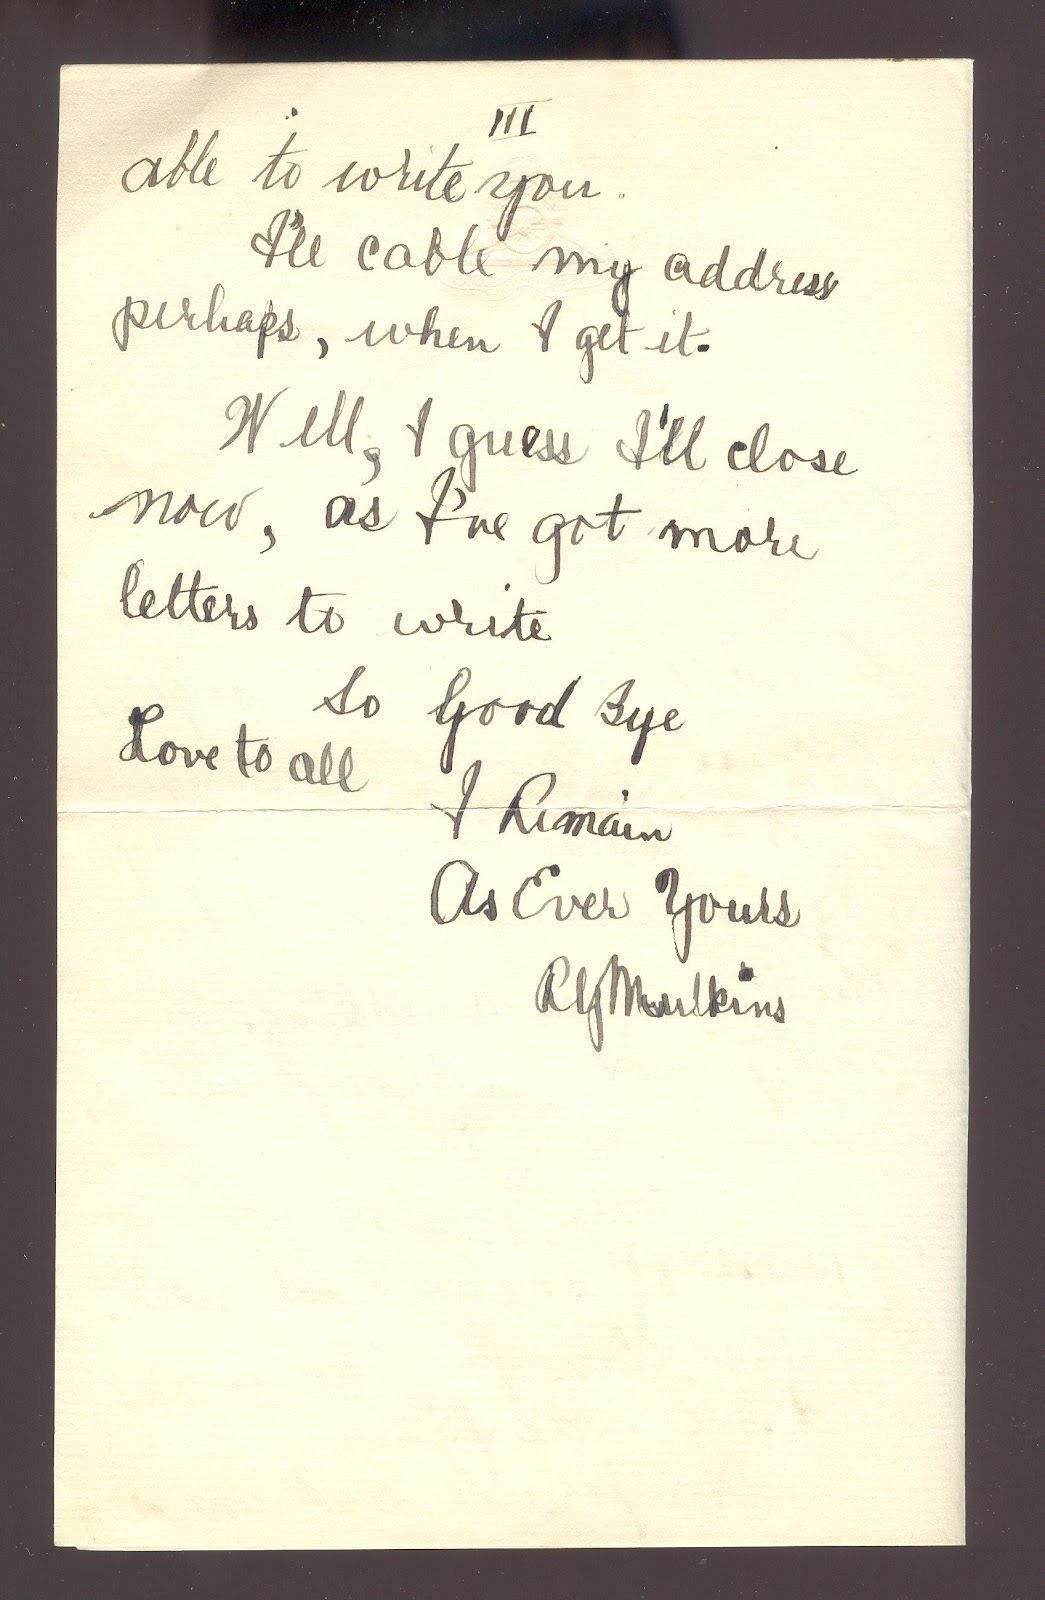 III
able to write you.
I'll cable my address
perhaps, when I get it.
Well, I guess I'll close
now, as I've got more
letters to write
So Good Bye
Love to all
I Remain
As Ever Yours